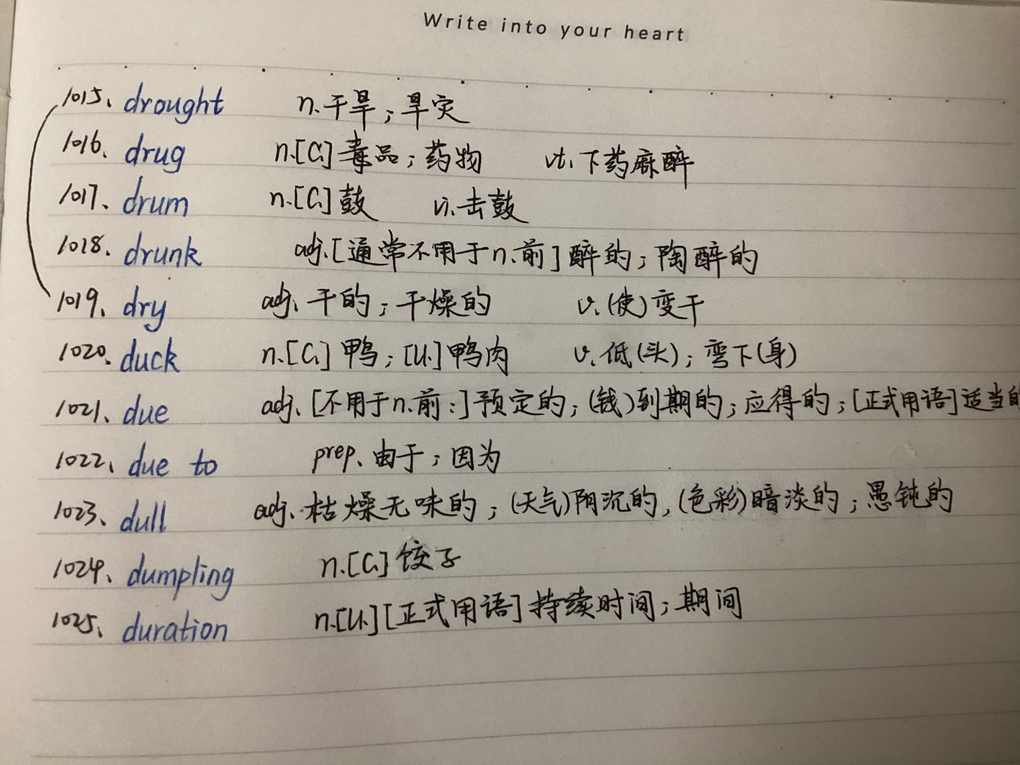 Write into your heart
1015. drought n.干旱;旱灾
1016. drug n.[C.]毒品;药物 vt.下药麻醉
1017. drum n.[C.]鼓 vi.击鼓
1018. drunk adj.[通常不用于n.前]醉的;陶醉的
1019. dry adj.干的;干燥的 v.(使)变干
1020. duck n.[C.]鸭;[U.]鸭肉 v.低(头);弯下(身)
1021. due adj.[不用于n.前:]预定的;(钱)到期的;应得的;[正式用语]适当的
1022. due to prep.由于;因为
1023. dull adj.枯燥无味的;(天气)阴沉的,(色彩)暗淡的;愚钝的
1024. dumpling n.[C.]饺子
1025. duration n.[U.][正式用语]持续时间;期间